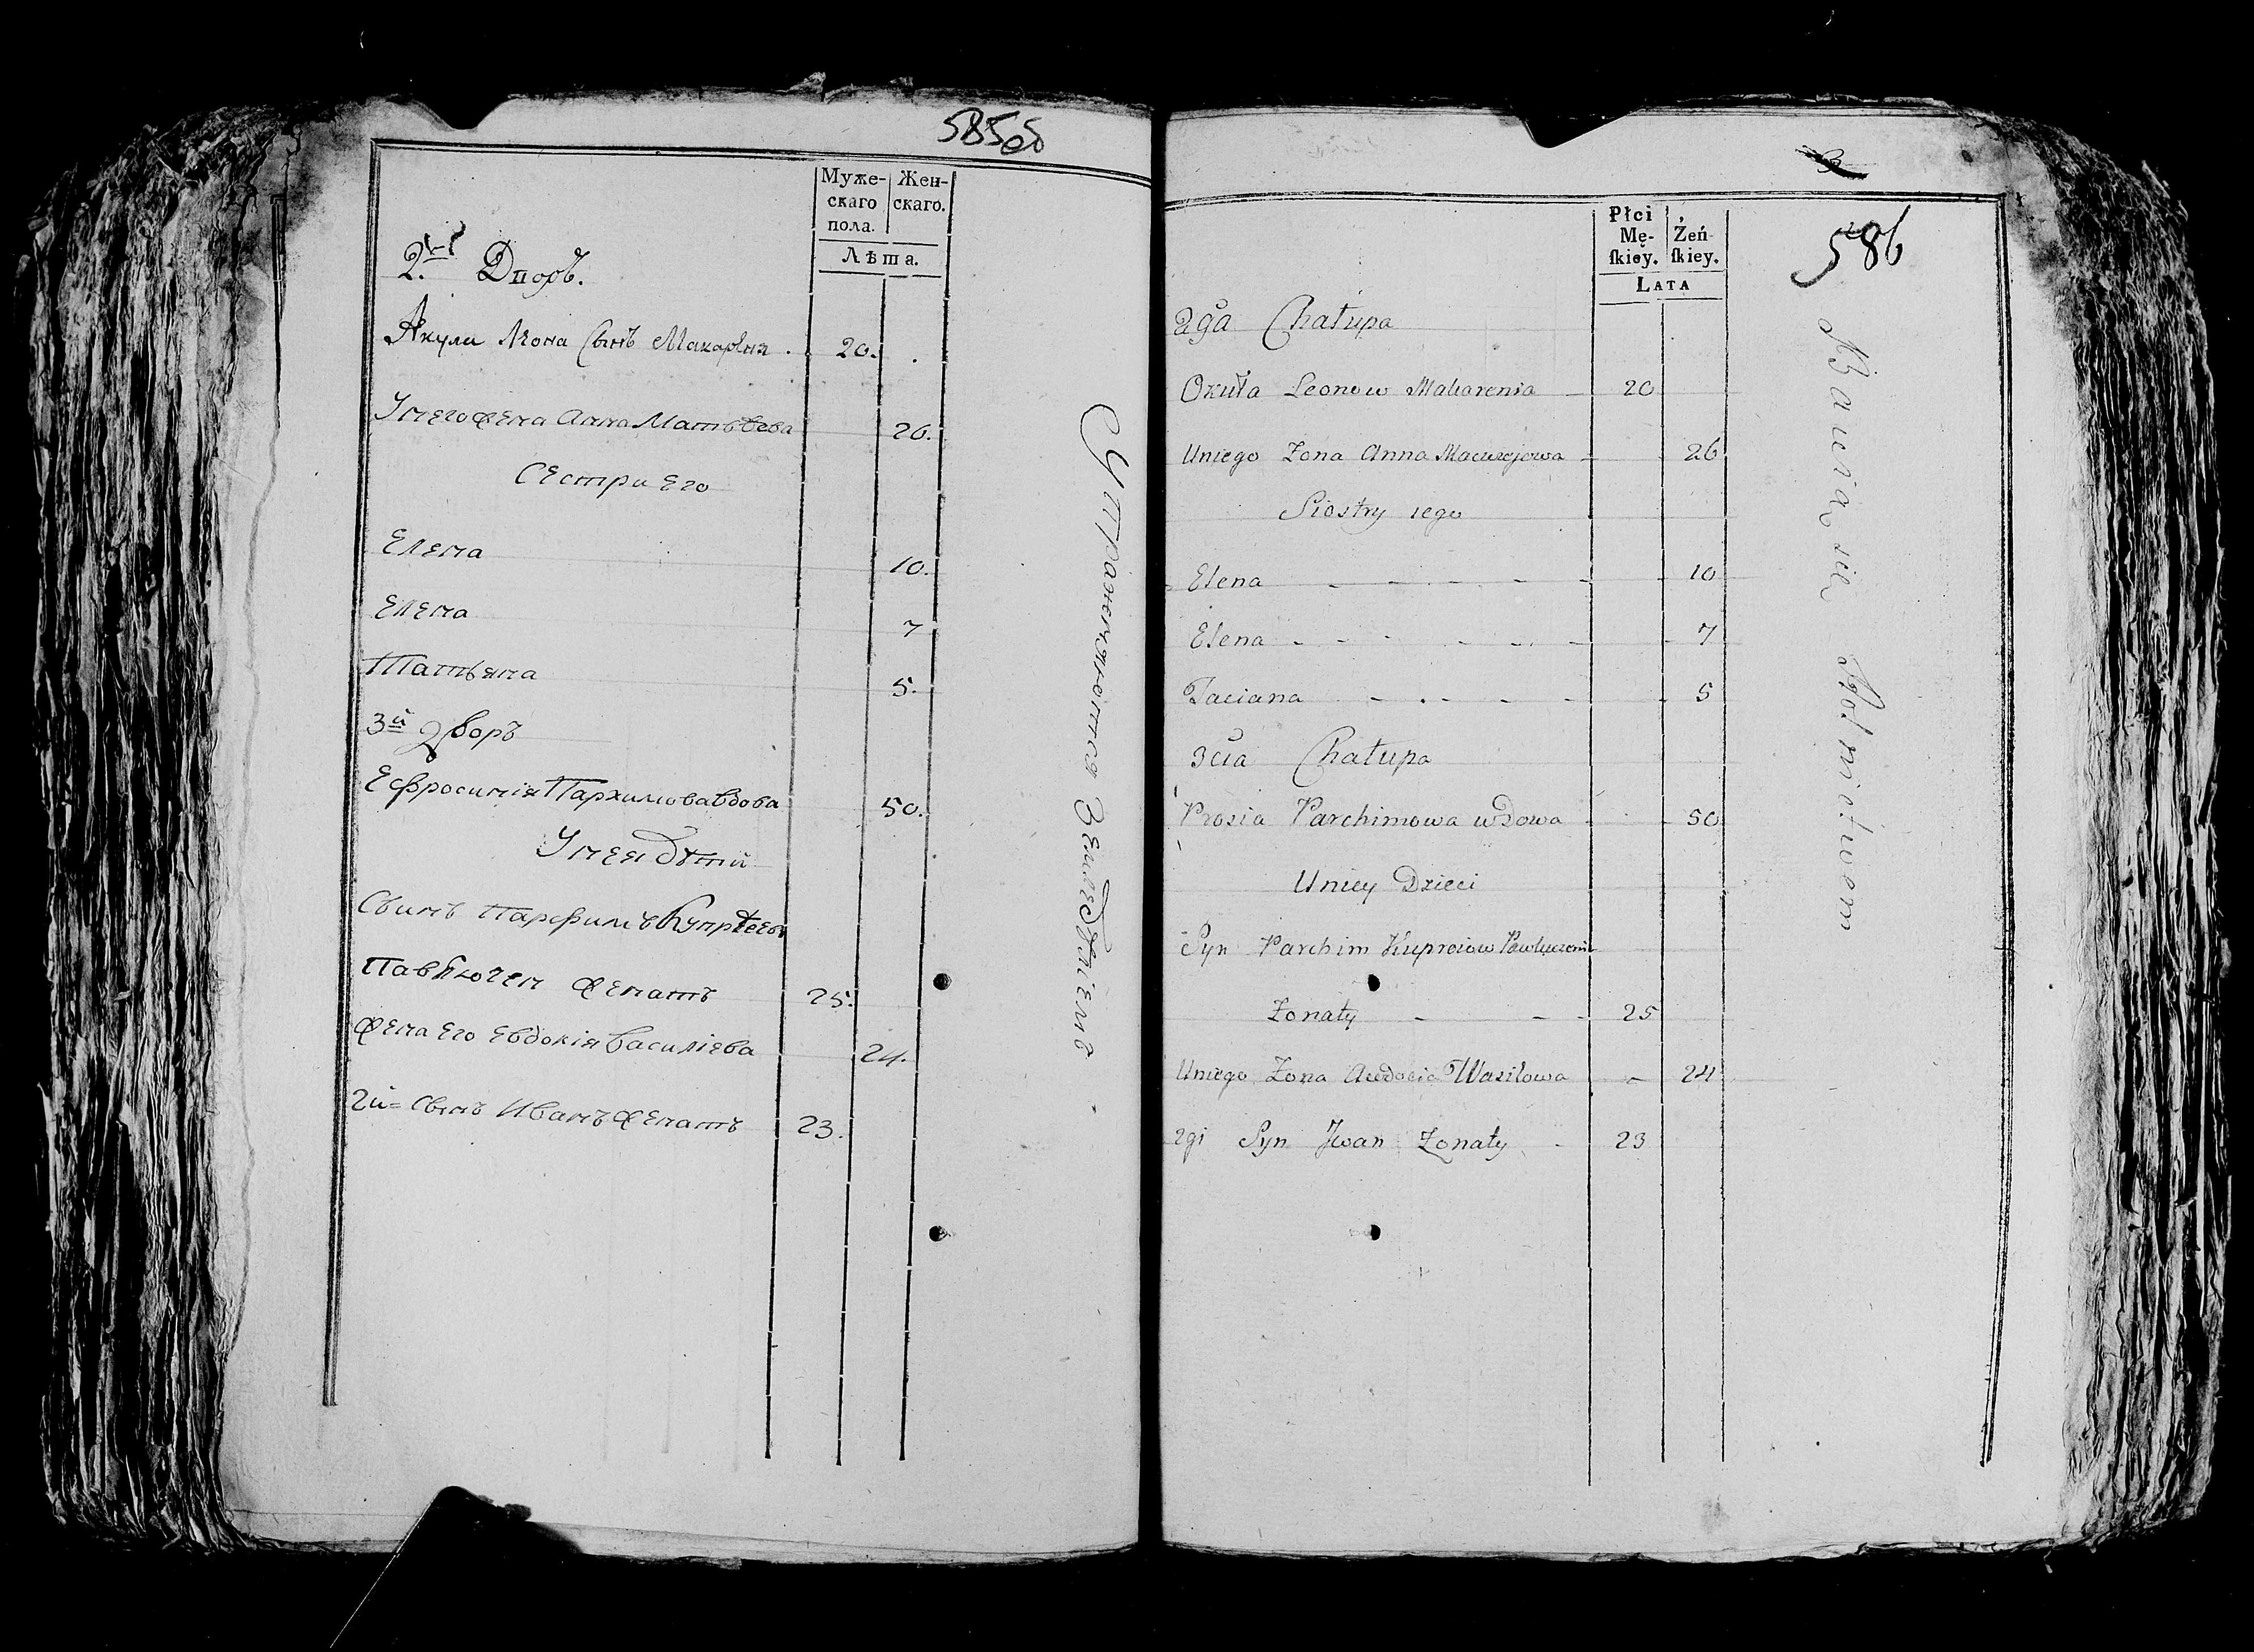 585об
Муже- Жен-
скаго скаго.
пола.
Лѣта.
2й Дворъ.
Акула Леона Сынъ Макареня . 20. .
Унего жена Анна Матвѣева 26.
Сестри его
Елена 10.
Елена 7
Татьяна 5.
3й дворъ
Ефросинія Пархимова вдова 50.
Унея дѣти
Сынъ Парфимъ Купрѣевъ
Павлючен женатъ 25.
жена его Евдокія Василіева 24.
2й сынъ Иванъ женатъ 23.
Упражняются Земледѣліемъ
3
586
Płci Żeń-
Mę- skiey.
skiey.
LATA
2ga Chałupa
Okuła Leonow Makarenia 20
Uniego Żona Anna Macwiejowa 26
Siostry iego
Elena 10
Elena 7
Taciana 5
3cia Chałupa
Prosia Parchimowa wdowa 50
Uniey Dzieci
Syn Parchim Kupreiow Pawluczenia
Żonaty 25
Uniego Żona Awdocia Wasilowa 24
2gi Syn Jwan Żonaty 23
Bawią się Rolnictwem